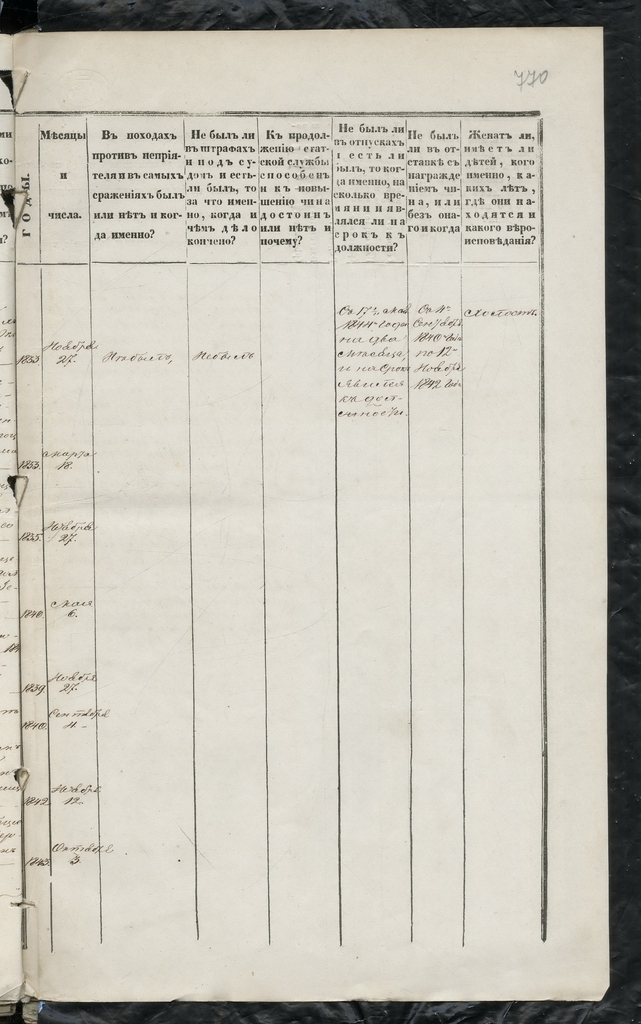 770
ГОДЫ.
Мѣсяцы
и
числа.
Въ походахъ
противъ непрія-
теля и въ самыхъ
сраженіяхъ былъ
или нѣтъ и ког-
да именно?
Не былъ ли
въ штрафахъ
и подъ су-
домъ и есть-
ли былъ, то
за что имен-
но, когда и
чѣмъ дѣло
кончено?
Къ продол-
женію стат-
ской службы
способенъ
и къ повы-
шенію чина
достоинъ
или нѣтъ и
почему?
Не былъ ли
въ отпускахъ
и есть ли
былъ, то ког-
да именно, на
сколько вре-
мяни и яв-
лялся ли на
срокъ къ
должности?
Не былъ
ли въ от-
ставкѣ съ
награжде-
ніемъ чи-
на, или
безъ она-
го и когда
Женатъ ли,
имѣетъ ли
дѣтей, кого
именно, ка-
кихъ лѣтъ,
гдѣ они на-
ходятся и
какого вѣро-
исповѣданія?
1833.
Ноября
27.
Небылъ,
Небылъ
Съ 17 Мая
1844 года
на два
мѣсяца,
и на срокъ
явился
къ долж-
ности.
Съ 4
Сентября
1840 года
по 12
Ноября
1842 года
Холостъ.
1833.
Марта
18.
1835.
Ноября
27.
1840.
Мая
6.
1839
Ноября
27.
1840.
Сентября
4.
1842
Ноября
12.
1843.
Октября
3.